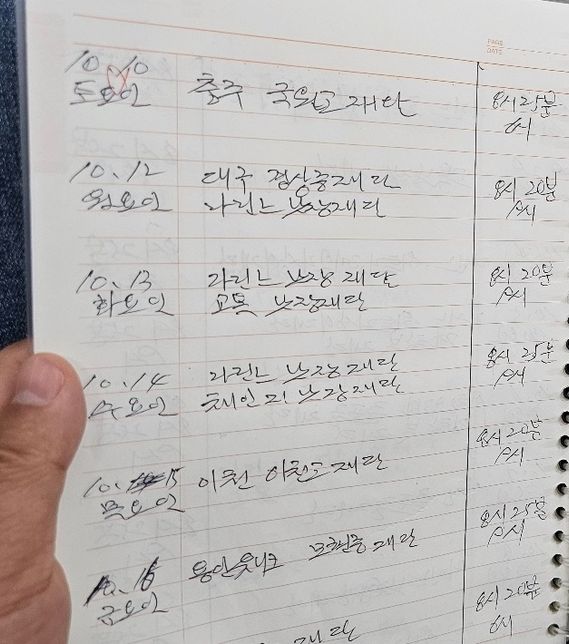 PAGE
DATE
10.10 충주 국원고 재단 8시 25분
토요일 6시
10.12 대구 경상중 재단 8시 20분
월요일 나린느 낫장재단 6시
10.13 라린느 낫장 재단 8시 20분
화요일 교복 낫장재단 6시
10.14 라린느 낫장 재단 8시 25분
수요일 체인지 낫장재단 6시
10. 15 이천 이천고 재단 8시 20분
목요일 6시
10.16 재단 8시 25분
금요일 6시
재단 8시 20분
6시